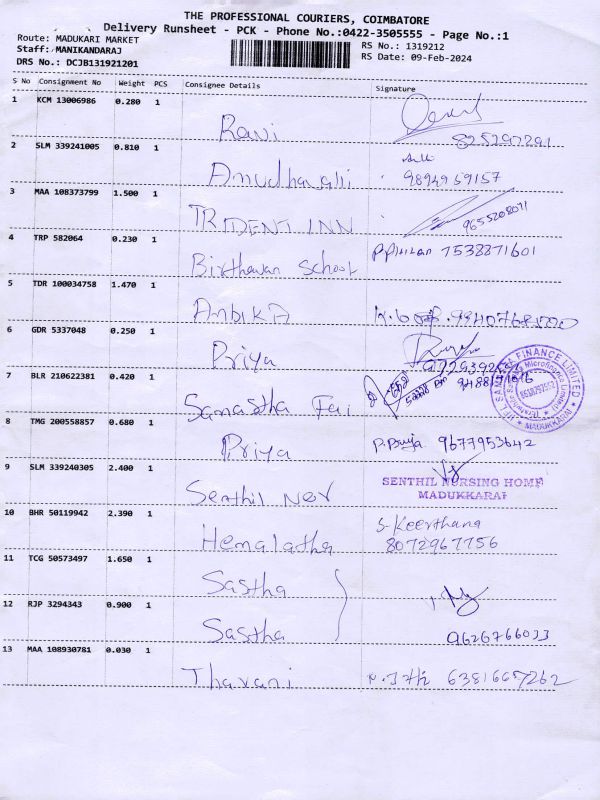 THE PROFESSIONAL COURIERS, COIMBATORE
Delivery Runsheet - PCK - Phone No.:0422-3505555 - Page No.:1
Route: MADUKARI MARKET
Staff: MANIKANDARAJ
DRS No.: DCJB131921201
RS No.: 1319212
RS Date: 09-Feb-2024
S No Consignment No Weight PCS Consignee Details Signature
1 KCM 13006986 0.280 1 Ravi
2 SLM 339241005 0.810 1 9894959157
3 MAA 108373799 1.500 1 TRIDENT INN 9655208071
4 TRP 582064 0.230 1 School 7538871601
5 TDR 100034758 1.470 1 AMBIKA
6 GDR 5337048 0.250 1 Priya
7 BLR 210622381 0.420 1
FINANCE LIMITED
MADUKKARAI
8 TMG 200558857 0.680 1 Priya 9677953642
9 SLM 339240305 2.400 1 Senthil
SENTHIL NURSING HOME
MADUKKARAI
10 BHR 50119942 2.390 1 Hemalatha S. Keerthana
8072967756
11 TCG 50573497 1.650 1 Sastha
12 RJP 3294343 0.900 1 Sastha 9626766033
13 MAA 108930781 0.030 1 Tharani 6381667262